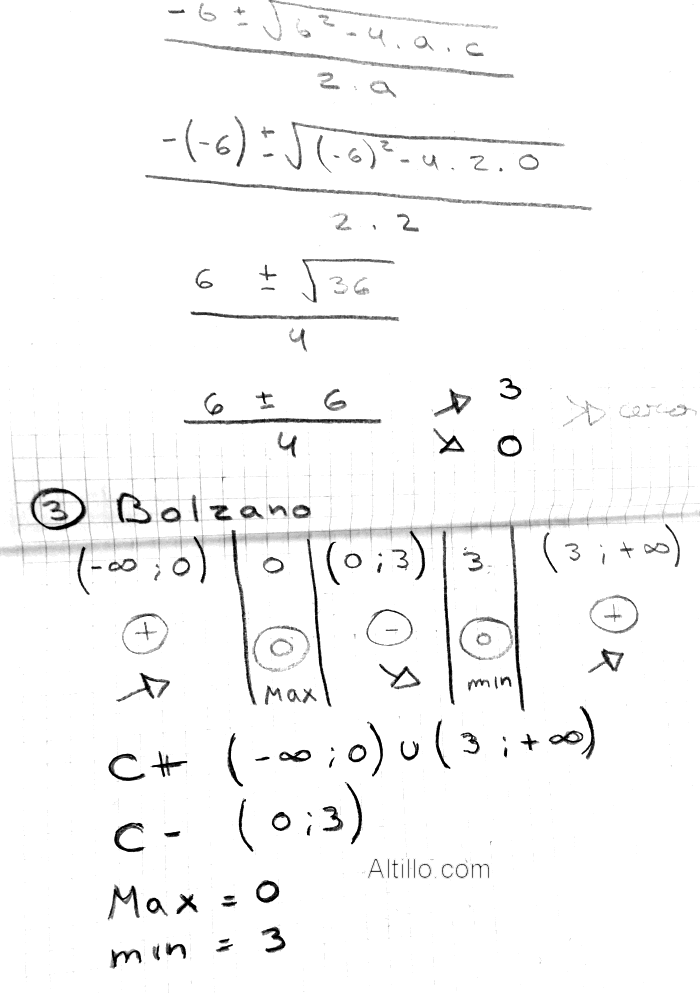 -6 ± √6² - 4 . a . c
2 . a
-(-6) ± √(-6)² - 4 . 2 . 0
2 . 2
6 ± √36
4
6 ± 6 → 3
4 → 0
③ Bolzano
(-∞ ; 0) | 0 | (0 ; 3) | 3 | (3 ; +∞)
+ 0 - 0 +
Max min
C+ (-∞ ; 0) ∪ (3 ; +∞)
C - (0 ; 3)
Altillo.com
Max = 0
min = 3